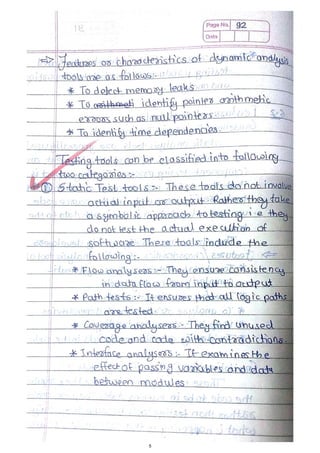 Page No. 92
Date
Features or characteristics of dynamic analysis
tools are as follows:-
* To detect memory leaks
* To identify pointer arithmetic
errors such as null pointers
* To identify time dependencies
Testing tools can be classified into following
two categories:-
① Static Test tools:- These tools do not involve
actual input or output. Rather they take
a symbolic approach to testing i.e they
do not test the actual execution of
software These tools include the
following:-
* Flow analysers:- They ensure consistency
in data flow from input to output
* Path tests:- It ensures that all logic paths
are tested
* Coverage analysers:- They find unused
code and code with contradictions
* Interface analysers:- It examines the
effect of passing variables and data
between modules
5